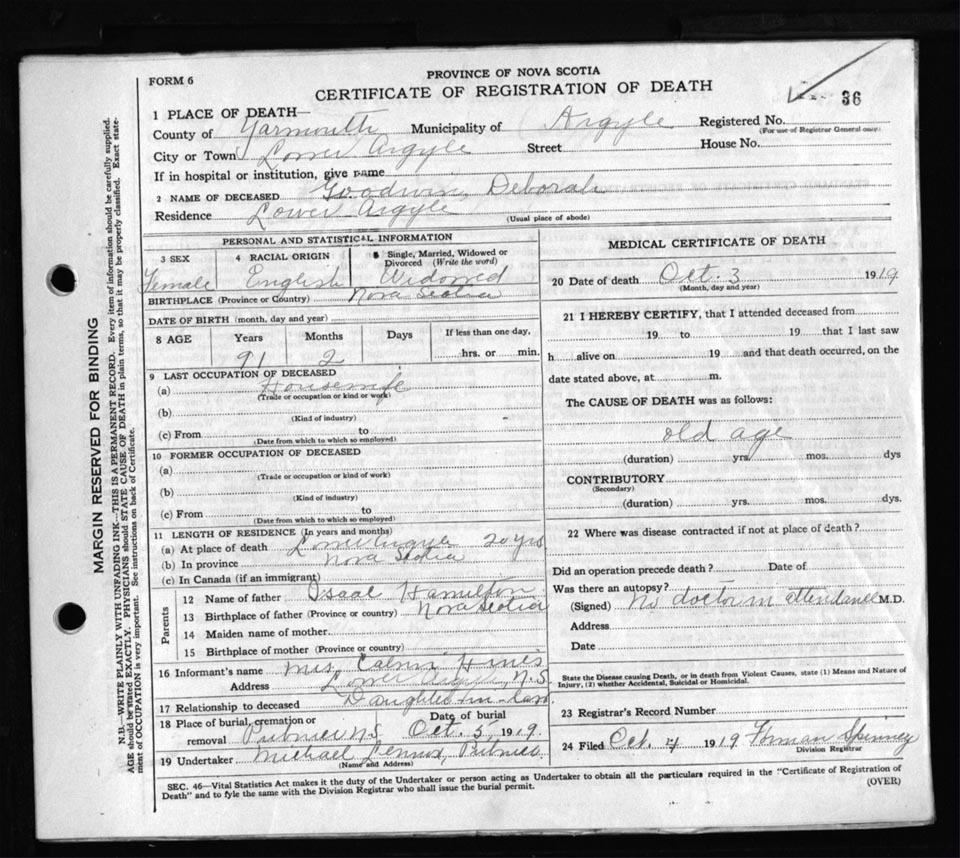 FORM 6
PROVINCE OF NOVA SCOTIA
CERTIFICATE OF REGISTRATION OF DEATH
36
1 PLACE OF DEATH—
County of Yarmouth Municipality of Argyle Registered No.
(For use of Registrar General only)
City or Town Lower Argyle Street House No.
If in hospital or institution, give name
2 NAME OF DECEASED Goodwin, Deborah
Residence Lower Argyle
(Usual place of abode)
PERSONAL AND STATISTICAL INFORMATION
3 SEX 4 RACIAL ORIGIN 5 Single, Married, Widowed or Divorced (Write the word)
Female English Widowed
BIRTHPLACE (Province or Country) Nova Scotia
DATE OF BIRTH (month, day and year)
8 AGE Years Months Days If less than one day,
91 2 hrs. or min.
9 LAST OCCUPATION OF DECEASED
(a) Housewife
(Trade or occupation or kind or work)
(b)
(Kind of industry)
(c) From to
(Date from which to which so employed)
10 FORMER OCCUPATION OF DECEASED
(a)
(Trade or occupation or kind of work)
(b)
(Kind of industry)
(c) From to
(Date from which to which so employed)
11 LENGTH OF RESIDENCE (In years and months)
(a) At place of death 20 yrs
(b) In province Nova Scotia
(c) In Canada (if an immigrant)
Parents
12 Name of father Isaac Hamilton
13 Birthplace of father (Province or country) Nova Scotia
14 Maiden name of mother
15 Birthplace of mother (Province or country)
16 Informant's name Mrs. Calvin Hines
Address Lower Argyle N.S.
17 Relationship to deceased Daughter-in-law
18 Place of burial, cremation or removal Pubnico N.S. Date of burial Oct. 5, 1919.
19 Undertaker Michael Lennox, Pubnico
(Name and Address)
MEDICAL CERTIFICATE OF DEATH
20 Date of death Oct. 3 1919.
(Month, day and year)
21 I HEREBY CERTIFY, that I attended deceased from
19 to 19 that I last saw
h alive on 19 and that death occurred, on the
date stated above, at m.
The CAUSE OF DEATH was as follows:
old age
(duration) yrs. mos. dys
CONTRIBUTORY
(Secondary)
(duration) yrs. mos. dys.
22 Where was disease contracted if not at place of death?
Did an operation precede death? Date of
Was there an autopsy?
(Signed) No doctor in attendance M.D.
Address
Date
State the Disease causing Death, or in death from Violent Causes, state (1) Means and Nature of
Injury, (2) whether Accidental, Suicidal or Homicidal.
23 Registrar's Record Number
24 Filed Oct. 4 1919 Forman Spinney
Division Registrar
SEC. 46—Vital Statistics Act makes it the duty of the Undertaker or person acting as Undertaker to obtain all the particulars required in the "Certificate of Registration of
Death" and to fyle the same with the Division Registrar who shall issue the burial permit.
(OVER)
MARGIN RESERVED FOR BINDING
N.B.—WRITE PLAINLY WITH UNFADING INK—THIS IS A PERMANENT RECORD. Every item of information should be carefully supplied.
AGE should be stated EXACTLY. PHYSICIANS should STATE CAUSE OF DEATH in plain terms, so that it may be properly classified. Exact state-
ment of OCCUPATION is very important. See instructions on back of Certificate.